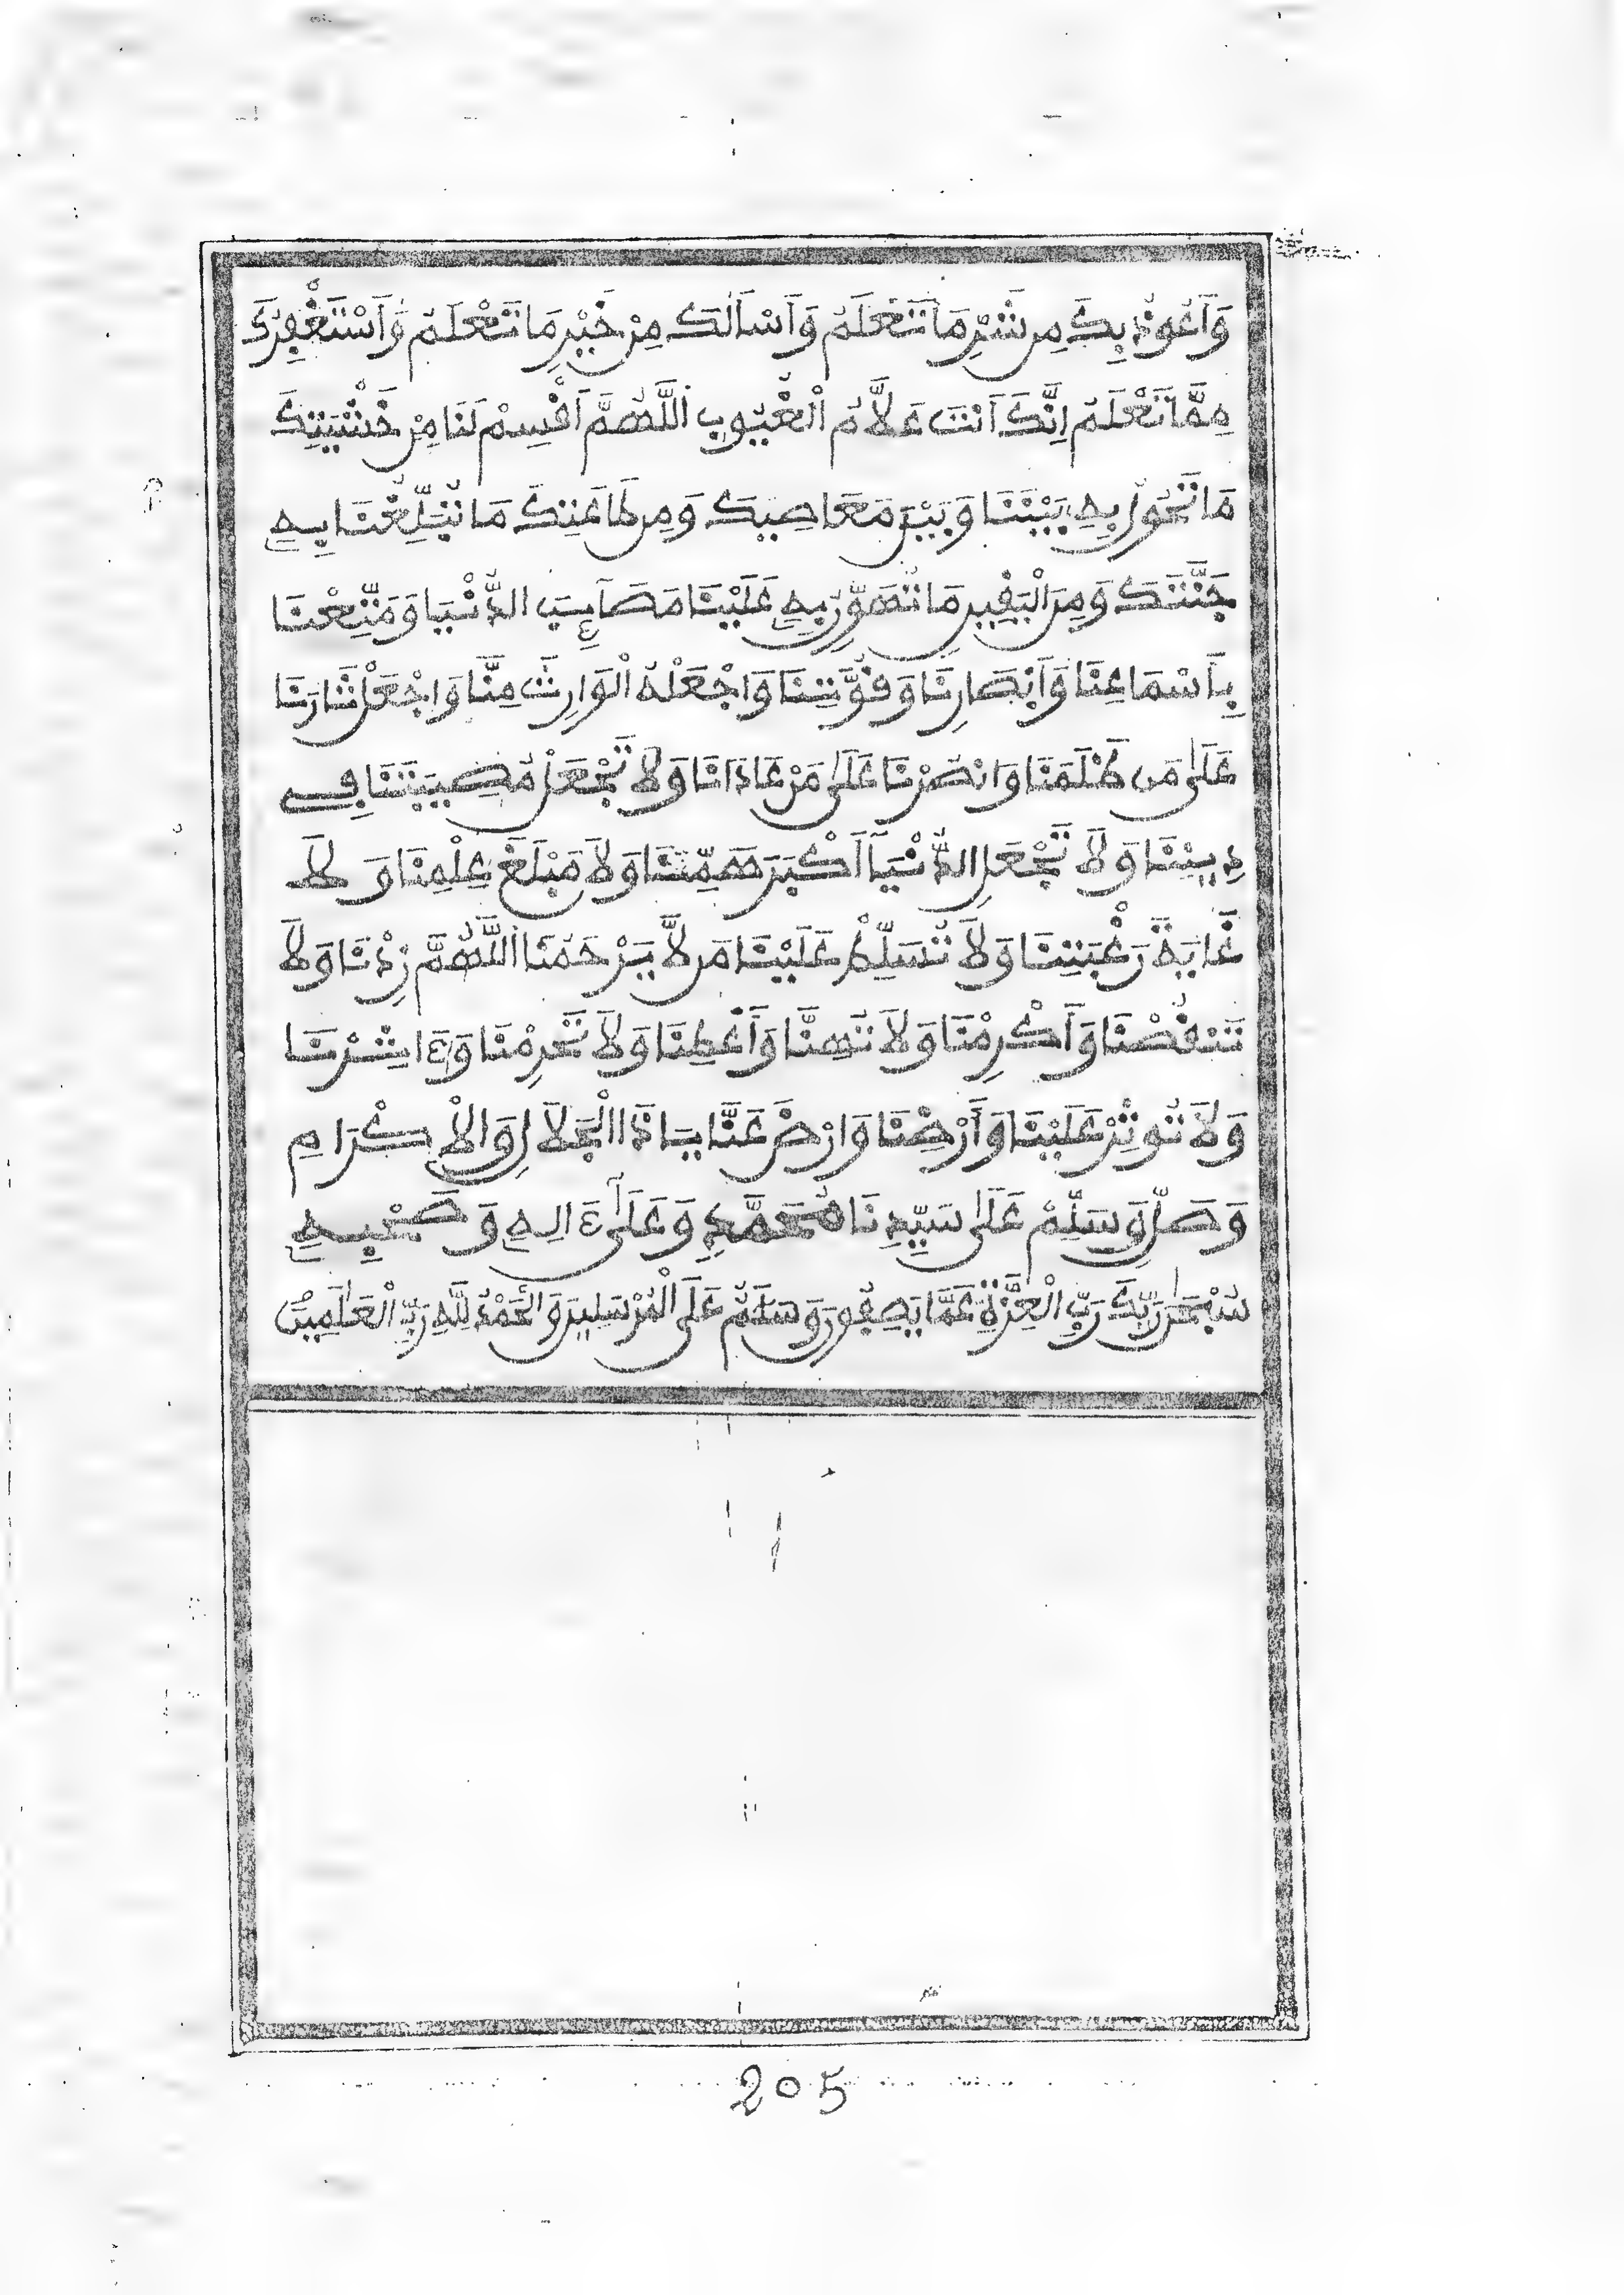 وَأَعُوذُ بِكَ مِن شَرِّ مَا تَعْلَمُ وَأَسْأَلُكَ مِنْ خَيْرِ مَا تَعْلَمُ وَأَسْتَغْفِرُكَ
مِمَّا تَعْلَمُ إِنَّكَ أَنْتَ عَلَّامُ الْغُيُوبِ اللَّهُمَّ اَقْسِمْ لَنَا مِنْ خَشْيَتِكَ
مَا تَحُولُ بِهِ بَيْنَنَا وَبَيْنَ مَعَاصِيكَ وَمِن طَاعَتِكَ مَا تُبَلِّغُنَا بِهِ
جَنَّتَكَ وَمِنَ الْيَقِينِ مَا تُهَوِّنُ بِهِ عَلَيْنَا مَصَآئِبَ الدُّنْيَا وَمَتِّعْنَا
بِأَسْمَاعِنَا وَأَبْصَارِنَا وَقُوَّتِنَا وَاجْعَلْهُ الْوَارِثَ مِنَّا وَاجْعَلْ ثَارَنَا
عَلَىٰ مَن ظَلَمَنَا وَانصُرْنَا عَلَىٰ مَنْ عَادَانَا وَلَا تَجْعَلْ مُصِيبَتَنَا فِي
دِينِنَا وَلَا تَجْعَلِ الدُّنْيَآ أَكْبَرَ هَمِّنَا وَلَا مَبْلَغَ عِلْمِنَا وَلَا
غَايَةَ رَغْبَتِنَا وَلَا تُسَلِّطْ عَلَيْنَا مَن لَّا يَرْحَمُنَا اللَّهُمَّ زِدْنَا وَلَا
تَنقُصْنَا وَأَكْرِمْنَا وَلَا تُهِنَّا وَأَعْطِنَا وَلَا تَحْرِمْنَا وَءَاثِرْنَا
وَلَا تُوثِرْ عَلَيْنَا وَأَرْضِنَا وَارْضَ عَنَّا يَا ذَا الْجَلَالِ وَالْإِكْرَامِ
وَصَلِّ وَسَلِّمْ عَلَىٰ سَيِّدِنَا مُحَمَّدٍ وَعَلَىٰٓ ءَالِهِ وَصَحْبِهِ
سُبْحَٰنَ رَبِّكَ رَبِّ الْعِزَّةِ عَمَّا يَصِفُونَ وَسَلَٰمٌ عَلَى الْمُرْسَلِينَ وَالْحَمْدُ لِلَّهِ رَبِّ الْعَٰلَمِينَ
205